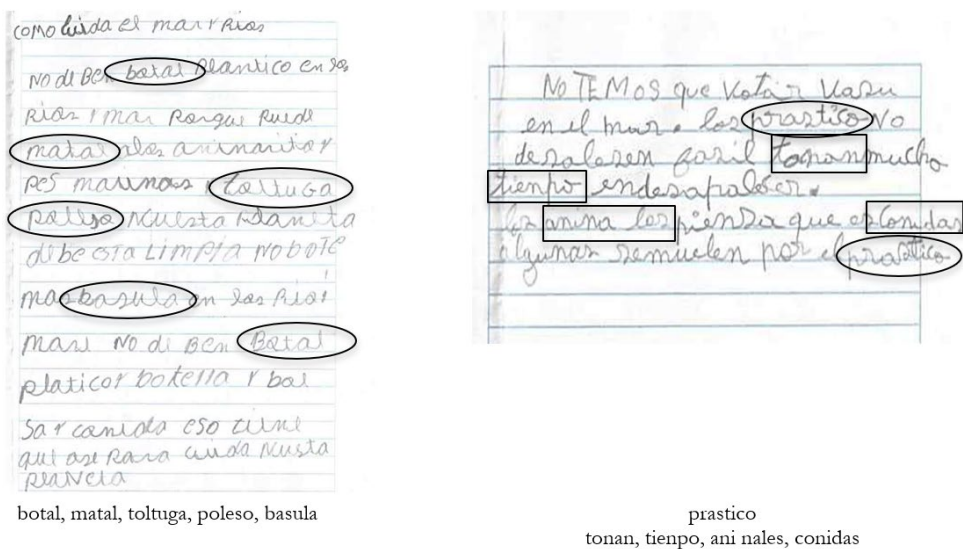 COMO cuida el mar Y Rios
NO de BeN botal Plantico en los
Rios Y mar Porque Puede
matal a los aninanitos Y
Pes marinos Y toltuga
poleso NUesta PLaNeta
debe esta LiMPia NO BOTe
mas basula en los Rios Y
mare NO de BeN Botal
platicos botella Y bol
sa Y conida eso tiene
que ase Para cuida Nuesta
PLaNeta
botal, matal, toltuga, poleso, basula
NO TEMOS que Votar Vasu
en el mar. los prastico No
desalesen fasil tonan mucho
tienpo en desapaleser.
los anina les piensa que es conidas
algunas se muelen por el prastico
prastico
tonan, tienpo, ani nales, conidas